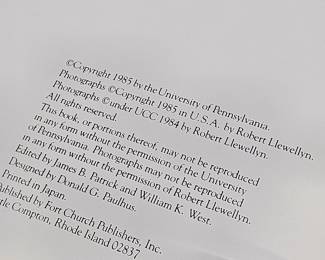 ©Copyright 1985 by the University of Pennsylvania.
Photographs ©Copyright 1985 in U.S.A. by Robert Llewellyn.
Photographs © under UCC 1984 by Robert Llewellyn.
All rights reserved.
This book, or portions thereof, may not be reproduced
in any form without the permission of the University
of Pennsylvania. Photographs may not be reproduced
in any form without the permission of Robert Llewellyn.
Edited by James B. Patrick and William K. West.
Designed by Donald G. Paulhus.
Printed in Japan.
ublished by Fort Church Publishers, Inc.
tle Compton, Rhode Island 02837